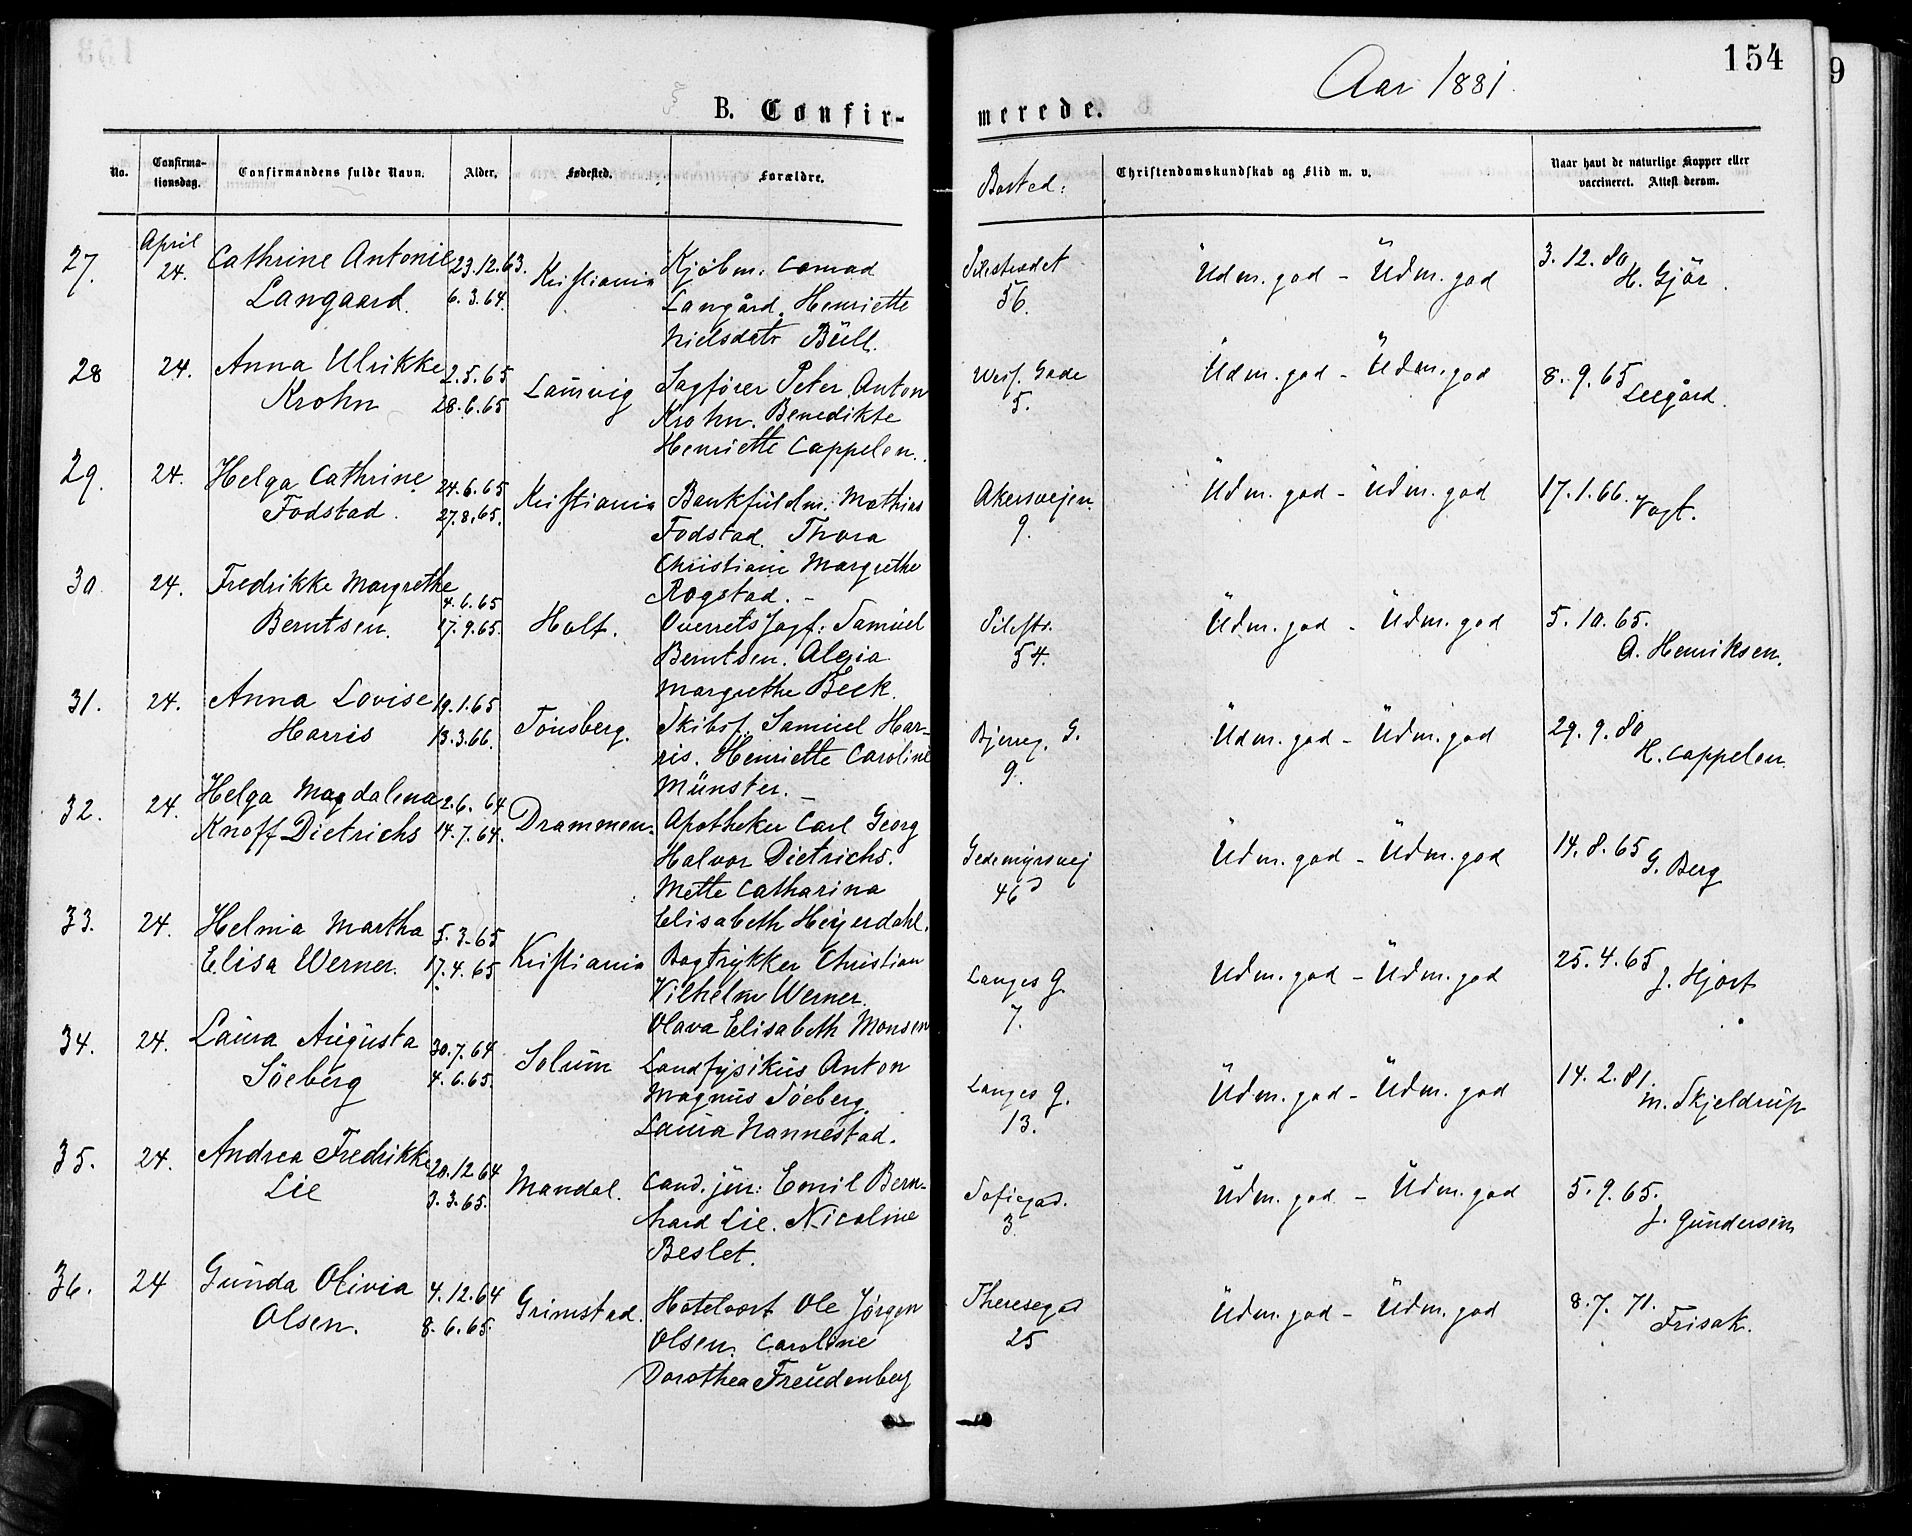 154
9
Aar 1881.
B. Confir-
merede.
No.
Confirma-
tionsdag.
Confirmandens fulde Navn.
Alder.
Fødested.
Forældre.
Bosted:
Christendomskundskab og Flid m. v.
Naar havt de naturlige Kopper eller
vaccineret. Attest derom.
27. April 24. Cathrine Antonie 23.12.63. Kristiania Kjøbm. Conrad
Langaard. 6.3.64. Langård. Henriette
Nielsdatr Büll.
Pilestrædet
56.
Üdm. god - Üdm. god
3.12.80
H. Gjör.
28 24. Anna Ulrikke 2.5.65 Laurvig Sagfører Peter Anton
Krohn 28.6.65 Krohn. Benedikte
Henriette Cappelen.
Wesf. Gade
5.
Üdm. god - Üdm. god
8.9.65
Leegård.
29. 24. Helga Cathrine 24.6.65 Kristiania Bankfuldm. Mathias
Fodstad. 27.8.65. Fodstad. Thora
Christiane Margrethe
Rogstad. -
Akersvejen.
9.
Üdm. god - Üdm. god
17.1.66. Vogt.
30. 24. Fredrikke Margrethe 4.6.65 Holt. Overretssagf: Samuel
Berntsen. 17.9.65. Berntsen. Alexia
Margrethe Beck.
Pilestr.
54.
Üdm. god - Üdm. god
5.10.65.
A. Henriksen.
31. 24. Anna Lovise 19.1.65 Tönsberg. Skibsf. Samuel Har-
Harris 13.3.66. ris. Henriette Caroline
Münster. -
Bjerreg. G.
9.
Üdm. god - Üdm. god
29.9.80
H. Cappelen
32. 24. Helga Magdalena 2.6.64 Drammen. Apotheker Carl Georg
Knoff Dietrichs 14.7.64. Halvor Dietrichs.
Mette Catharina
Elisabeth Heyerdahl.
Gedemyrsvej
46
Üdm. god - Üdm. god
14.8.65
G. Berg
33. 24. Helma Martha 5.3.65 Kristiania Bogtrykker Christian
Elisa Werner. 17.4.65 Vilhelm Werner.
Olava Elisabeth Monsen
Langes G
7.
Üdm. god - Üdm. god
25.4.65
J. Hjort
34. 24. Laura Augusta 30.7.64 Solum Landfysikus Anton
Söeberg 4.6.65. Magnus Söeberg.
Laura Nannestad.
Langes G.
13.
Üdm. god - Üdm. god
14.2.81.
M. Skjeldrup
35. 24. Andrea Fredrikke 20.12.64 Mandal. Cand. jur: Emil Bern-
Lie 3.3.65. hard Lie. Nicoline
Beslet.
Sofiegad.
3.
Üdm. god - Üdm. god
5.9.65.
J. Gundersen
36. 24 Gunda Olivia 4.12.64 Grimstad. Hotelvært Ole Jörgen
Olsen. 8.6.65. Olsen. Caroline
Dorothea Freudenberg
Theresegad
25
Üdm. god - Üdm. god
8.7.71.
Frisak.